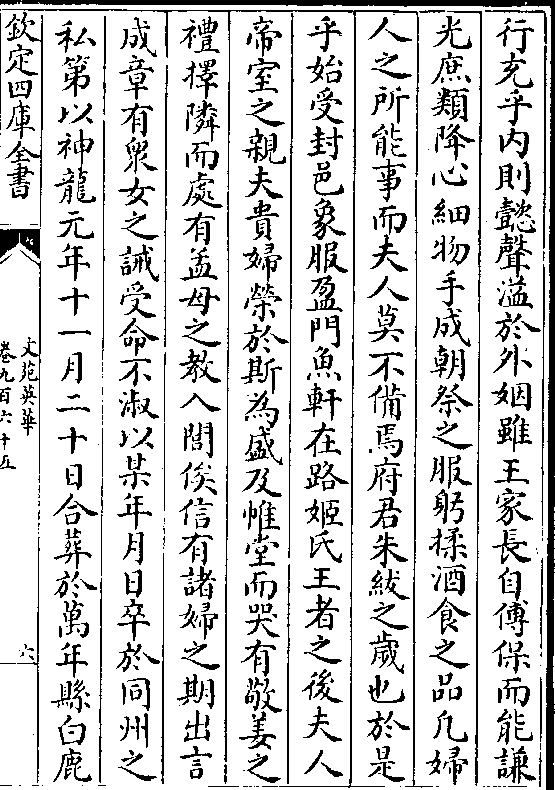 行充乎内則懿聲溢於外姻雖王家長自傅保而能謙
光庶類降心細物手成朝祭之服躬揉酒食之品凡婦
人之所能事而夫人莫不備焉府君朱紱之歲也於是
乎始受封邑象服盈門魚軒在路姬氏王者之後夫人
帝室之親夫貴婦榮於斯為盛及帷堂而哭有敬姜之
禮擇隣而處有孟母之教入閤俟信有諸婦之期出言
成章有衆女之誡受命不淑以某年月日卒於同州之
私第以神龍元年十一月二十日合葬於萬年縣白鹿
欽定四庫全書
文苑英華
卷九百六十五
六